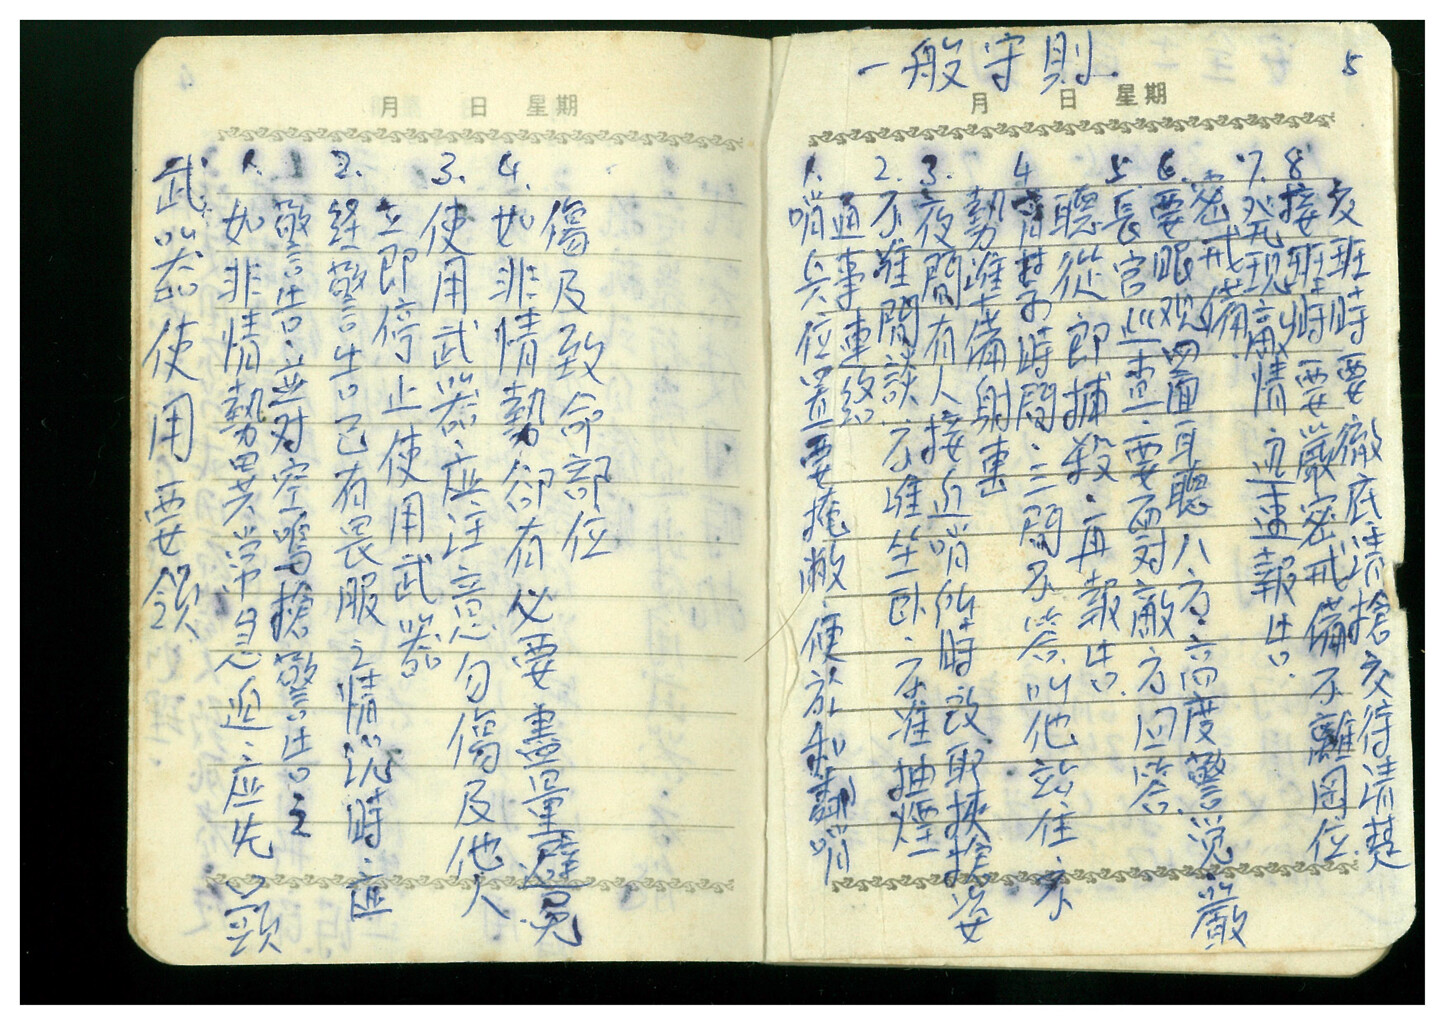 月 日 星期
武器使用要領
1. 如非情勢異常急迫.应先口頭
警告.並对空鳴槍警告之
2. 經警告已有畏服之情況時.应
立即停止使用武器
3. 使用武器.应注意勿傷及他人
4. 如非情勢卻有必要盡量避免
傷及致命部位
5
一般守則.
月 日 星期
1. 哨兵位置要掩蔽.便於和對哨
通事連絡
2. 不準閒談.不準坐卧.不准抽煙
3. 夜間有人接近哨所時改取挾槍姿
勢準備射
4. 宵禁時間.三問不答.叫他站住.不
聽從即捕殺.再報告.
5. 長官巡查.要面对敵方回答
6. 要眼观四面耳聽八方.高度警觉.嚴
密戒備
7. 発現敵情迅速報告.
8. 接班時要嚴密戒備不離岡位.
交班時要徹底清槍交待清楚